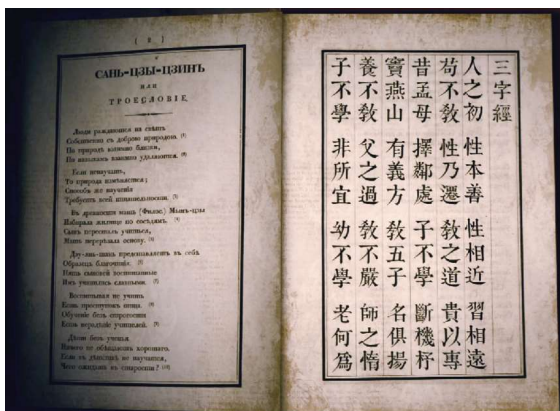 ( 2 )
САНЬ-ЦЗЫ-ЦЗИНЪ
ИЛИ
ТРОЕСЛОВІЕ.
Люди рождаются на свѣтъ
Собственно съ доброю природою. (1)
По природѣ взаимно близки,
По навыкамъ взаимно удаляются. (2)
Если ненаучать,
То природа измѣняется;
Способъ же наученія
Требуетъ всей
Въ древности мать (Филос.) Мынъ-цзы
Избирала жилище по сосѣдямъ.
Сынъ пересталъ учиться,
Мать перерѣзала основу.
въ себѣ
Образецъ благочинія.
сыновей воспитанные
Имъ учились
Воспитывая не учить
Есть проступокъ отца.
Обученіе безъ строгости
Есть нерадѣніе учителей.
Дѣти безъ ученья
Ничего не обѣщаютъ хорошаго.
Если въ дѣтствѣ не научатся,
Чего ожидать въ старости?
三字經
人之初 性本善 性相近 習相遠
苟不敎 性乃遷 敎之道 貴以專
昔孟母 擇鄰處 子不學 斷機杼
竇燕山 有義方 敎五子 名俱揚
養不敎 父之過 敎不嚴 師之惰
子不學 非所宜 幼不學 老何爲